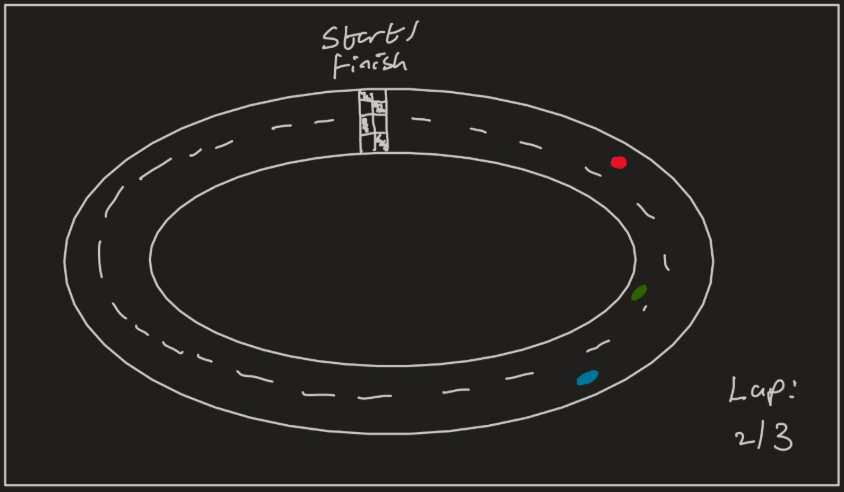 Start/
Finish
Lap:
2/3